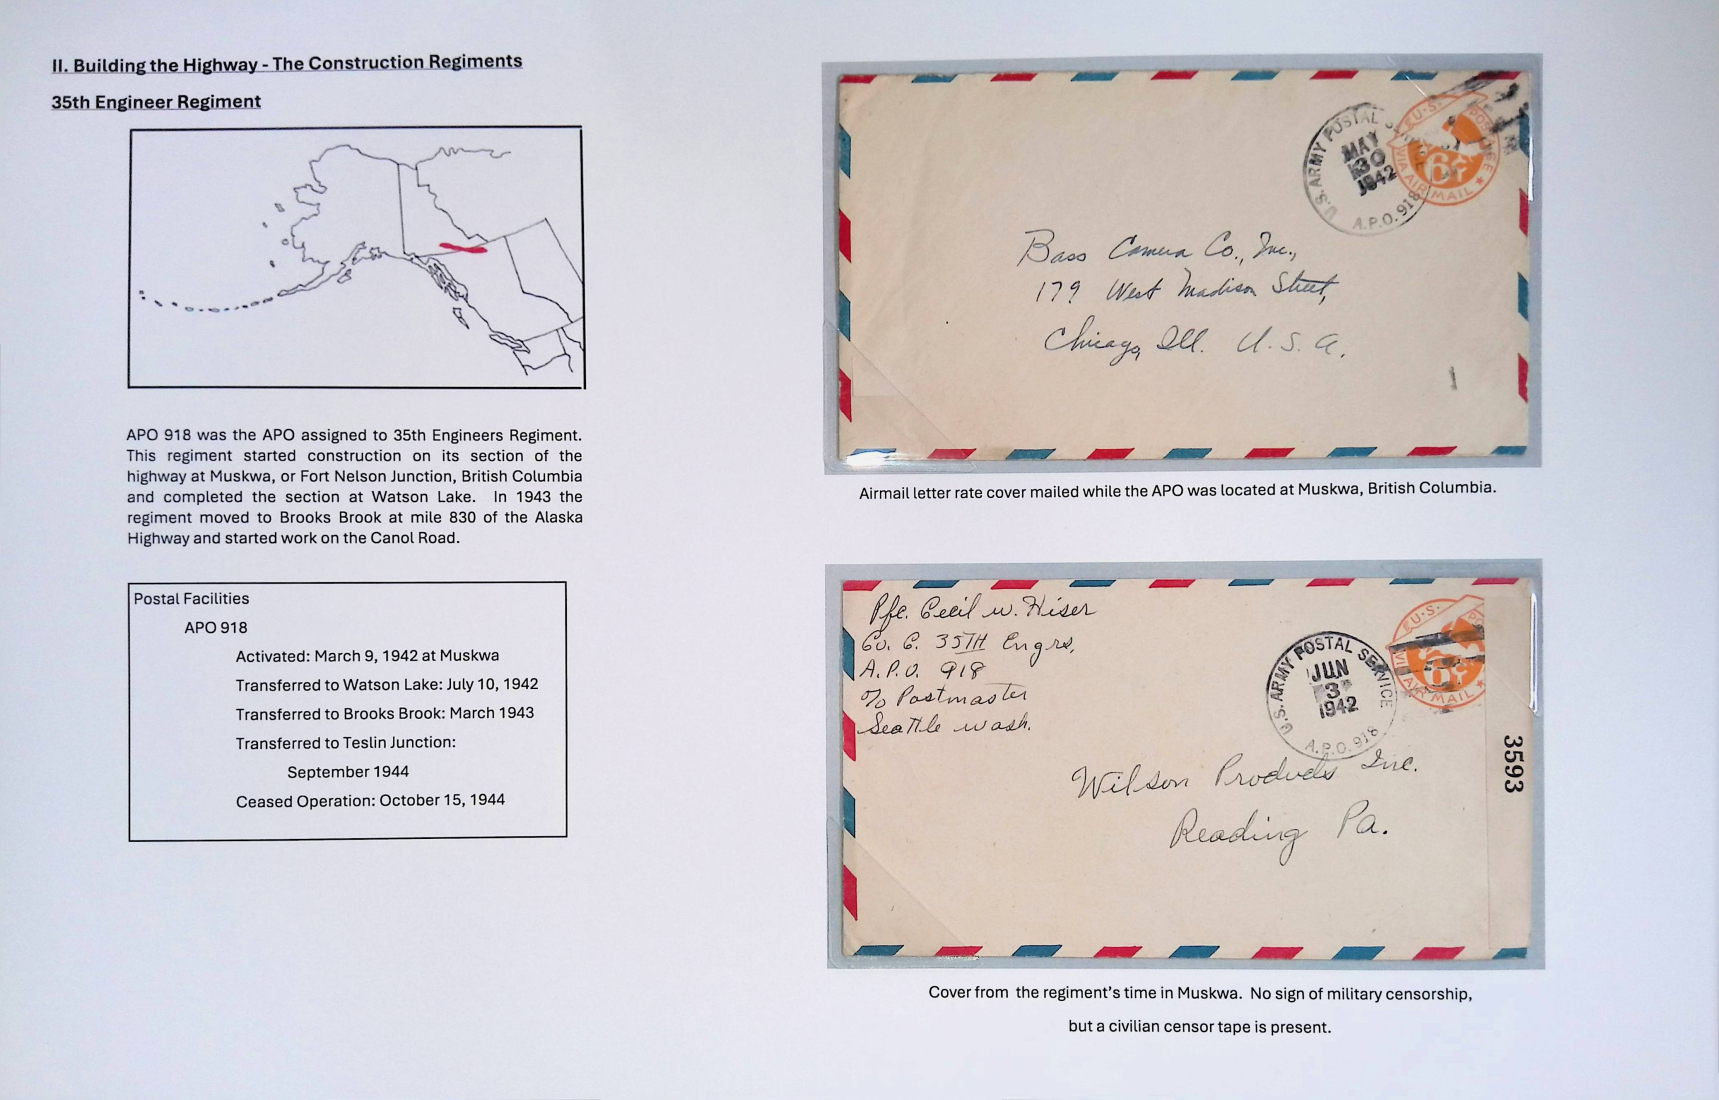 II. Building the Highway - The Construction Regiments
35th Engineer Regiment
APO 918 was the APO assigned to 35th Engineers Regiment.
This regiment started construction on its section of the
highway at Muskwa, or Fort Nelson Junction, British Columbia
and completed the section at Watson Lake. In 1943 the
regiment moved to Brooks Brook at mile 830 of the Alaska
Highway and started work on the Canol Road.
Postal Facilities
APO 918
Activated: March 9, 1942 at Muskwa
Transferred to Watson Lake: July 10, 1942
Transferred to Brooks Brook: March 1943
Transferred to Teslin Junction:
September 1944
Ceased Operation: October 15, 1944
U.S. ARMY POSTAL
MAY
30
1942
A.P.O. 918
U.S. POSTAGE
6¢
VIA AIR MAIL
Bass Camera Co., Inc.,
179 West Madison Street,
Chicago, Ill. U.S.A.
1
Airmail letter rate cover mailed while the APO was located at Muskwa, British Columbia.
Pfc. Cecil W. Hiser
Co. C. 35TH Engrs,
A.P.O. 918
c/o Postmaster
Seattle Wash.
U.S. ARMY POSTAL SERVICE
JUN
3
1942
A.P.O. 918
U.S. PO
6¢
VIA AIR MAIL
3593
Wilson Products Inc.
Reading Pa.
Cover from the regiment's time in Muskwa. No sign of military censorship,
but a civilian censor tape is present.